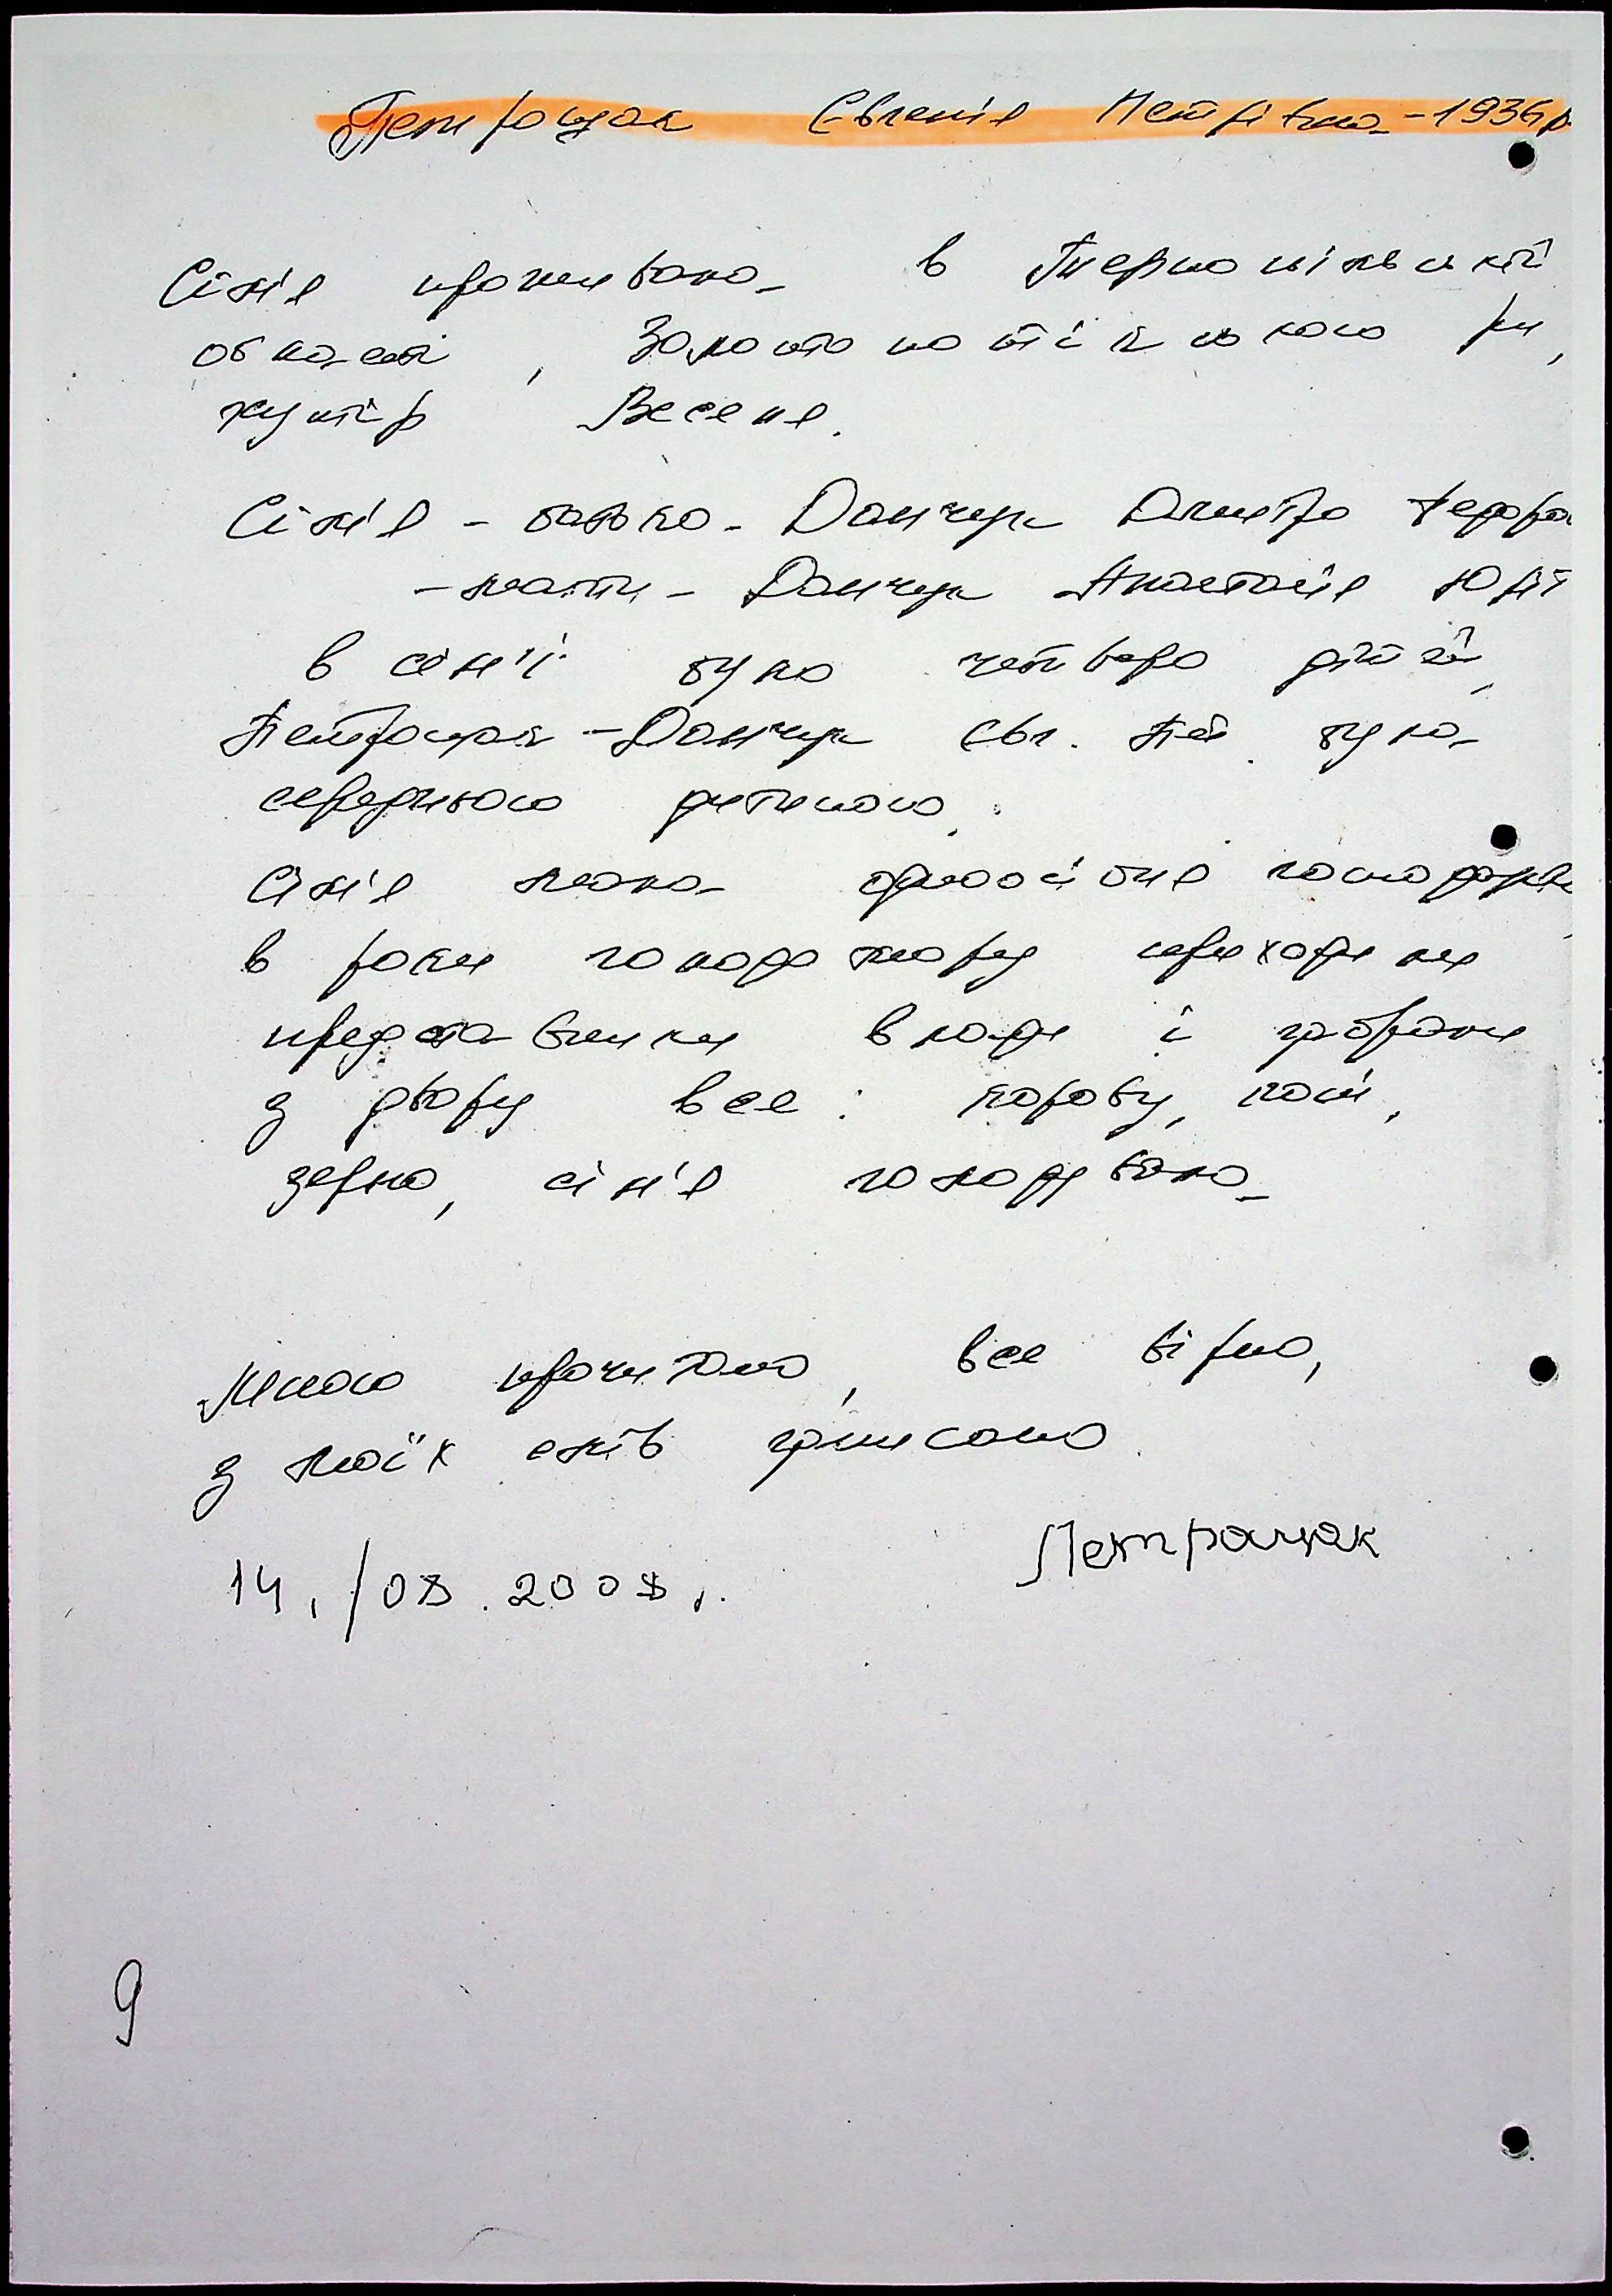 Петрощак Євгенія Петрівна - 1936 р.
Сім'я проживала в Тернопільській
області, Золотопотіцького р-н,
хутір Веселе.
Сім'я - батько - Данчук Дмитро Федоро
- мати - Данчук Анастасія Юлі
в сім'ї було четверо дітей,
Петрощак - Данчук Євг. Пет. була
середньою дитиною.
Сім'я мала одноосібне господарство
в роки голодомору приходили
представники влади і забрали
з двору все: корову, коні,
зерно, сім'я голодувала
Мною прочитано, все вірно,
з моїх слів записано.
Петращак
14./08.2008 р.
9